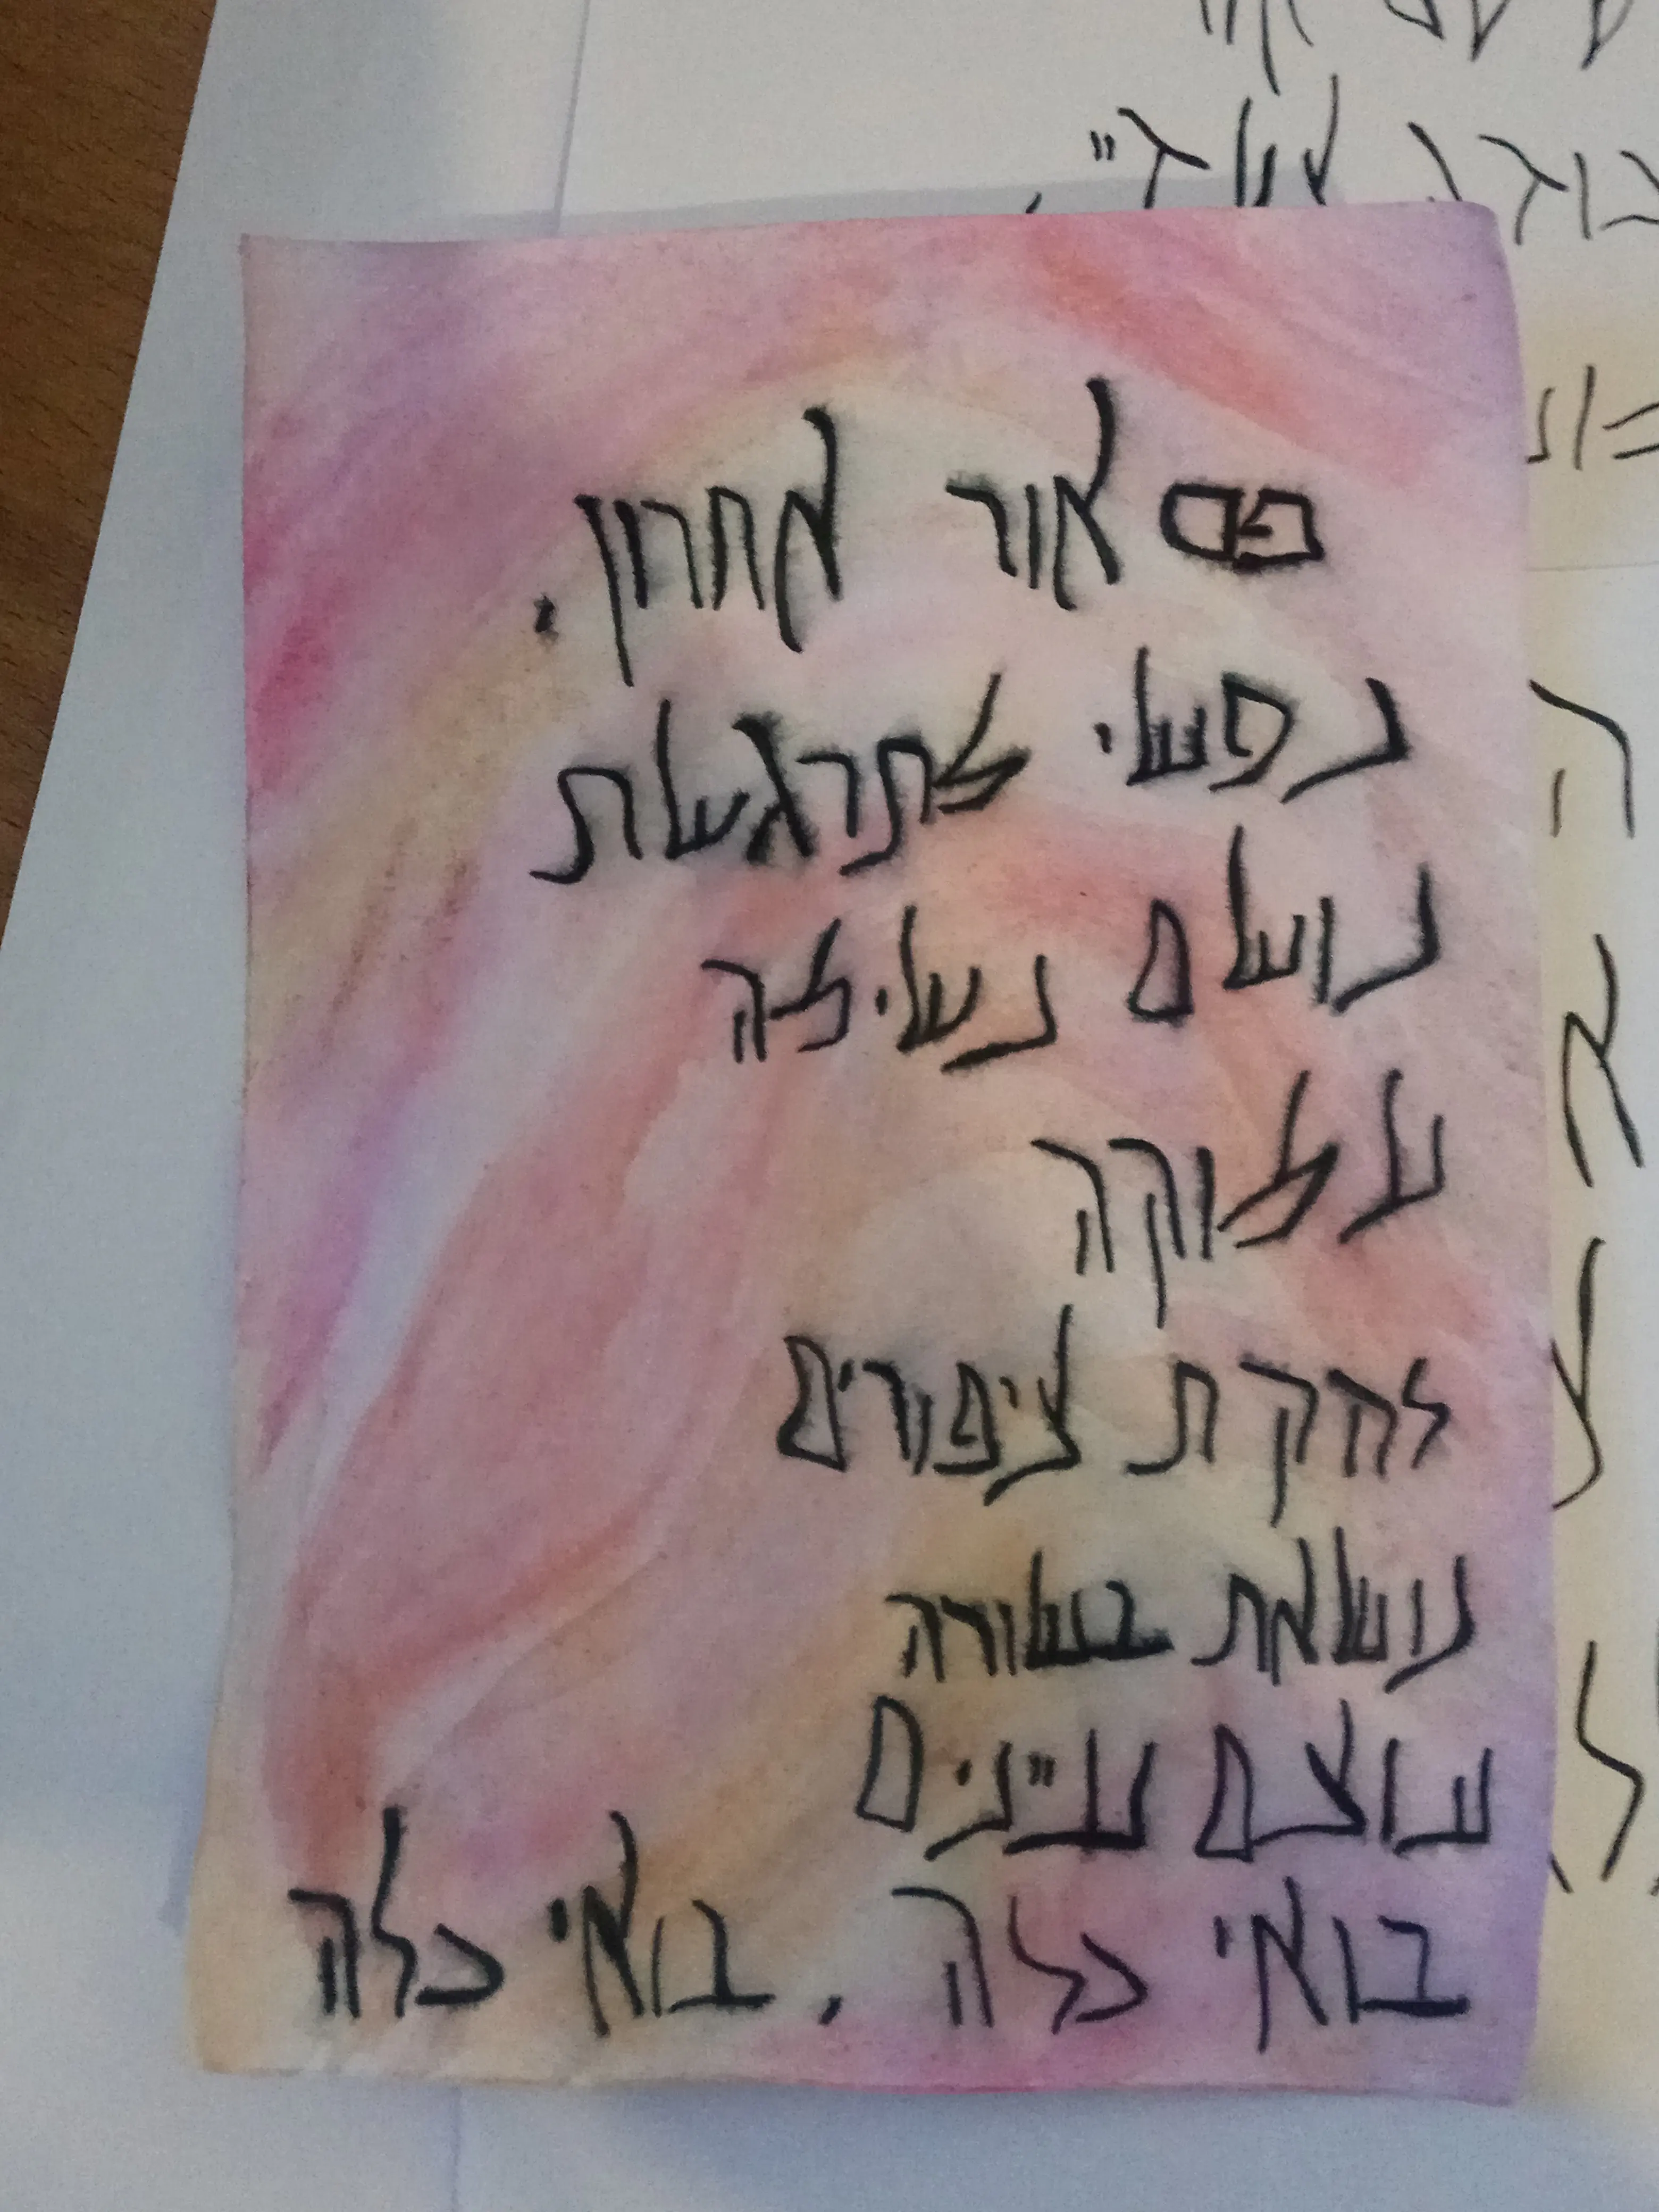 פס אור אחרון.
נפשי מתרגשת
נושם נשימה
עמוקה
להקת ציפורים
נושאת בשורה
עוצם עיינים
בואי כלה, בואי כלה